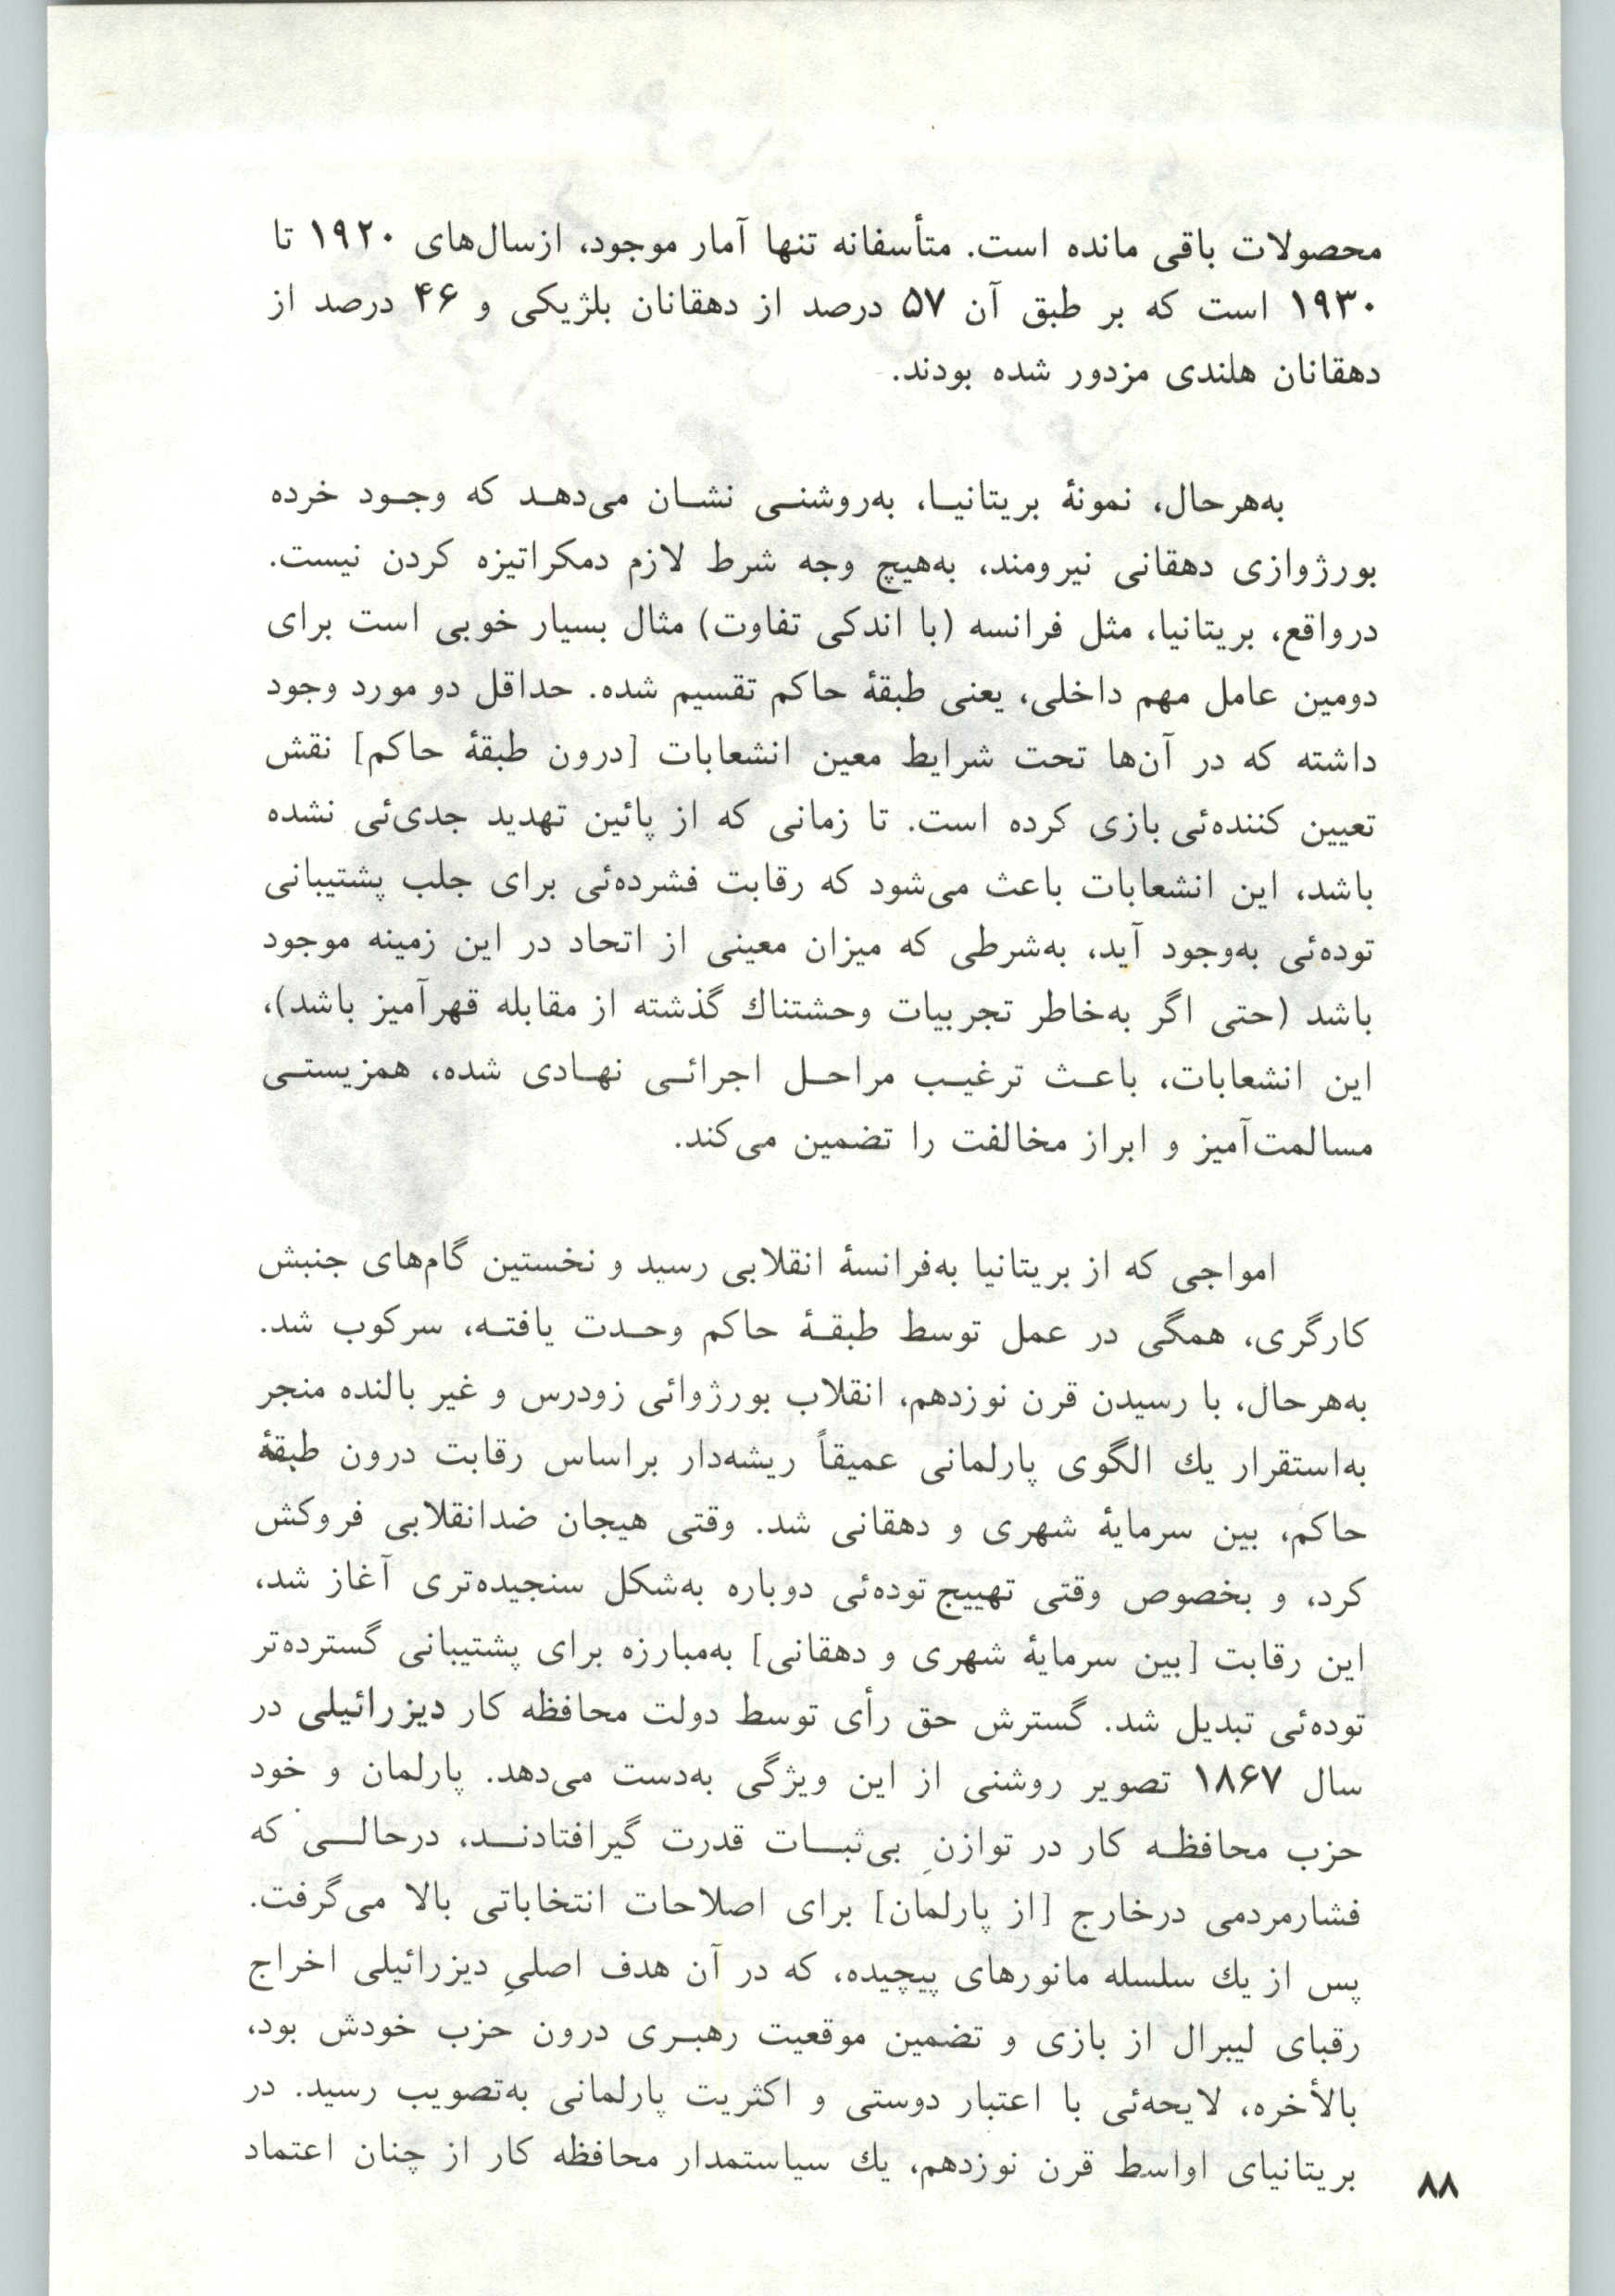 محصولات باقی مانده است. متأسفانه تنها آمار موجود، ازسال‌های ۱۹۲۰ تا
۱۹۳۰ است که بر طبق آن ۵۷ درصد از دهقانان بلژیکی و ۴۶ درصد از
دهقانان هلندی مزدور شده بودند.
به‌هرحال، نمونهٔ بریتانیـا، به‌روشنـی نشـان می‌دهـد که وجـود خرده
بورژوازی دهقانی نیرومند، به‌هیچ وجه شرط لازم دمکراتیزه کردن نیست.
درواقع، بریتانیا، مثل فرانسه (با اندکی تفاوت) مثال بسیار خوبی است برای
دومین عامل مهم داخلی، یعنی طبقهٔ حاکم تقسیم شده. حداقل دو مورد وجود
داشته که در آن‌ها تحت شرایط معین انشعابات [درون طبقهٔ حاکم] نقش
تعیین کننده‌ئی بازی کرده است. تا زمانی که از پائین تهدید جدی‌ئی نشده
باشد، این انشعابات باعث می‌شود که رقابت فشرده‌ئی برای جلب پشتیبانی
توده‌ئی به‌وجود آید، به‌شرطی که میزان معینی از اتحاد در این زمینه موجود
باشد (حتی اگر به‌خاطر تجربیات وحشتناك گذشته از مقابله قهرآمیز باشد)،
این انشعابات، باعـث ترغیـب مراحـل اجرائـی نهـادی شده، همزیستـی
مسالمت‌آمیز و ابراز مخالفت را تضمین می‌کند.
امواجی که از بریتانیا به‌فرانسهٔ انقلابی رسید و نخستین گام‌های جنبش
کارگری، همگی در عمل توسط طبقـهٔ حاکم وحـدت یافتـه، سرکوب شد.
به‌هرحال، با رسیدن قرن نوزدهم، انقلاب بورژوائی زودرس و غیر بالنده منجر
به‌استقرار یك الگوی پارلمانی عمیقاً ریشه‌دار براساس رقابت درون طبقهٔ
حاکم، بین سرمایهٔ شهری و دهقانی شد. وقتی هیجان ضدانقلابی فروکش
کرد، و بخصوص وقتی تهییج توده‌ئی دوباره به‌شکل سنجیده‌تری آغاز شد،
این رقابت [بین سرمایهٔ شهری و دهقانی] به‌مبارزه برای پشتیبانی گسترده‌تر
توده‌ئی تبدیل شد. گسترش حق رأی توسط دولت محافظه کار دیزرائیلی در
سال ۱۸۶۷ تصویر روشنی از این ویژگی به‌دست می‌دهد. پارلمان و خود
حزب محافظـه کار در توازنِ بی‌ثبـات قدرت گیرافتادنـد، درحالـی که
فشارمردمی درخارج [از پارلمان] برای اصلاحات انتخاباتی بالا می‌گرفت.
پس از یك سلسله مانورهای پیچیده، که در آن هدف اصلیِ دیزرائیلی اخراج
رقبای لیبرال از بازی و تضمین موقعیت رهبـری درون حزب خودش بود،
بالأخره، لایحه‌ئی با اعتبار دوستی و اکثریت پارلمانی به‌تصویب رسید. در
بریتانیای اواسط قرن نوزدهم، یك سیاستمدار محافظه کار از چنان اعتماد
۸۸